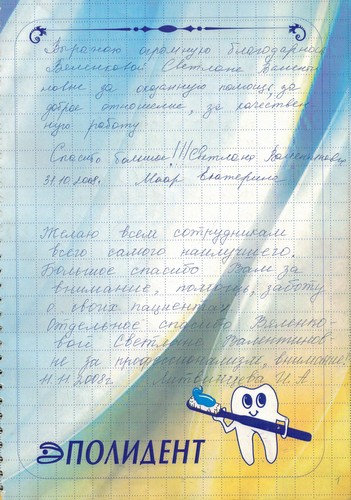 Выражаю огромную благодарность
Веленковой Светлане Валентиновне за оказанную помощь, за
доброе отношение, за качествен
ную работу
Спасибо большое!!! Светлана Валентиновна
31.10.2008. Маар Екатерина
Желаю всем сотрудникам
всего самого наилучшего.
Большое спасибо Вам за
внимание, помощь, заботу
о своих пациентах.
Отдельное спасибо
вой Светлане Валентинов-
не за профессионализм, внимание!
11.11.2008г. И.А.
ЭПОЛИДЕНТ